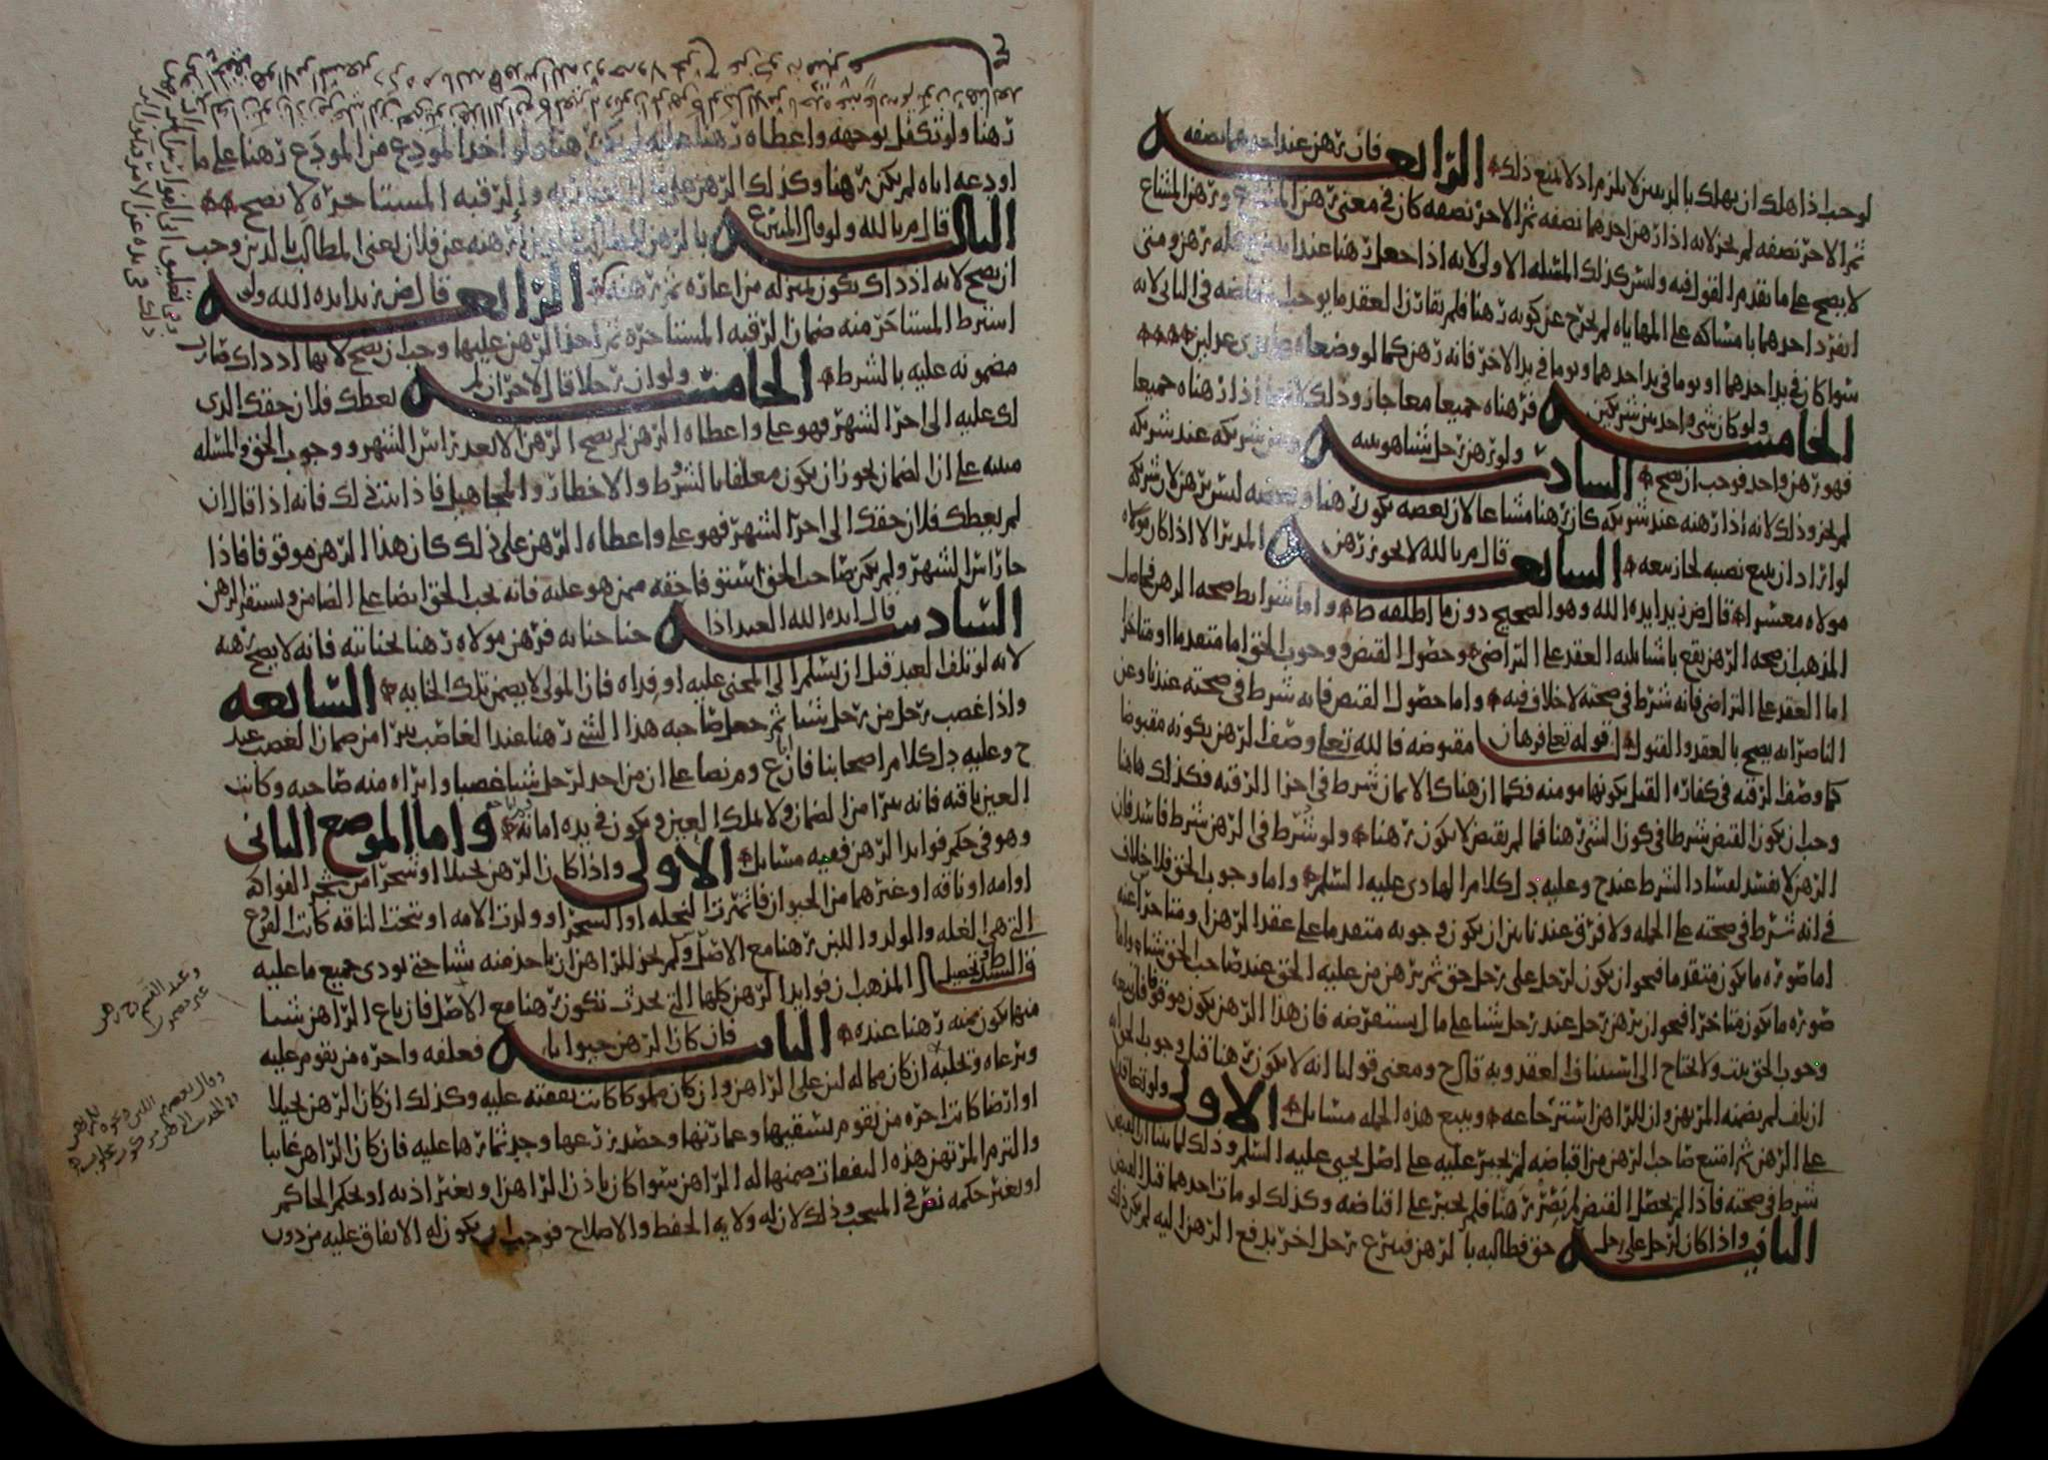 لوجب اذا هلك ان يهلك بالدين لا يلزم اذ لا يمنع ذلك الرابعه فان رهن عند احدهما نصفه
ثم الاخر نصفه لم يجز لانه اذا رهن احدهما نصفه ثم الاخر نصفه كان في معنى رهن المشاع ورهن المشاع
لا يصح على ما تقدم القول فيه وليس كذلك المسئله الاولى لانه اذا جعل رهنا عند
انفرد احدهما بامساكه على المهاياه لم يخرج عن كونه رهنا فلم يقارن العقد ما يوجب في الثاني لانه
سوا كان في يد احدهما او يوما في يد احدهما ويوما في يد الاخر فانه رهن كما لو وضعاه على يدي عدلين
الخامسه ولو كان شي واحد بين شريكين فرهناه جميعا معا جاز وذلك لانهما اذا رهناه جميعا
فهو رهن واحد فوجب ان يصح السادسه ولو رهن رجل شيا هو بينه وبين شريكه عند شريكه
لم يجز وذلك لانه اذا رهنه عند شريكه كان رهنا مشاعا لان بعضه يكون رهنا وبعضه ليس برهن لان شريكه
لو اراد ان يبيع نصيبه لجاز بيعه السابعه قال م بالله لا يجوز رهن المدبر الا اذا كان مولاه
مولاه معسرا قال ض زيد ايده الله وهو الصحيح دون ما اطلقه ط واما شرايط صحه الرهن فحاصل
المذهب ان صحه الرهن يقع باشيا منها العقد على التراضي وحصول القبض ووجوب الحق اما متقدما او متاخرا
اما العقد على التراضي فانه شرط في صحته لا خلاف فيه واما حصول القبض فانه شرط في صحته عندنا وعن
الناصر انه يصح بالعقد والقبول لقوله تعا فرهان مقبوضه فالله تعا وصف الرهن بكونه مقبوضا
كما وصف الرقبه في كفاره القتل بكونها مومنه فكما ان هناك الايمان شرط في اجزا الرقبه فكذلك هاهنا
وجب ان يكون القبض شرطا في كون الشي رهنا فما لم يقبض لا يكون رهنا ولو شرط في الرهن شرط فاسد فان
الرهن لا يفسد لفساد الشرط عند ح وعليه دل كلام الهادي عليه السلم واما وجوب الحق فلا خلاف
في انه شرط في صحته على الجمله ولا فرق عندنا بين ان يكون وجوبه متقدما على عقد الرهن او متاخرا عنه
اما صوره ما يكون متقدما فنحو ان يكون لرجل على رجل حق ثم يرهن من عليه الحق عند صاحب الحق شيا واما
صوره ما يكون متاخرا فنحو ان يرهن رجل عند رجل شيا على مال يستقرضه فان هذا الرهن يكون موقوفا
وجوب الحق يثبت ولا يحتاج الى استيناف العقد وبه قال ح ومعنى قولنا انه لا يكون رهنا قبل وجوب الحق انه
ان تلف لم يضمنه المرتهن وان للراهن استرجاعه ويتبع هذه الجمله مسايل الاولى ولو تعاقدا
على الرهن ثم امتنع صاحب الرهن من اقباضه لم يجبر عليه على اصل يحيى عليه السلم وذلك لما بينا ان القبض
شرط في صحته فاذا لم يحصل القبض لم يصر رهنا فلم يجبر على اقباضه وكذلك لو مات احدهما قبل القبض
الثانيه واذا كان لرجل على رجل حق فطالبه بالرهن فتبرع رجل اخر بدفع الرهن اليه لم يكن ذلك
رهنا ولو تكفل بوجهه واعطاه رهنا عليه لم يكن رهنا ولو اخذ المودع من المودع رهنا على ما
اودعه اياه لم يكن رهنا وكذلك الرهن المستاجره لا يصح
الثالثه قال م بالله ولو قال المتبرع بالرهن للمطالب بالدين ارهنه عن فلان يعني المطالب بالدين وجب
ان يصح لانه اذ ذاك يكون بمنزله من اعاره ثم رهنه الرابعه قال ض زيد ايده الله ولو
اشترط المستاجر منه ضمان الرقبه المستاجره ثم اخذ الرهن عليها وجب ان يصح لانها اذ ذاك صارت
مضمونه عليه بالشرط الخامسه ولو ان رجلا قال لاخر ان لم يعطك فلان حقك الذي
لك عليه الى اخر الشهر فهو علي واعطاه الرهن لم يصح الرهن الا بعد راس الشهر ووجوب الحق والمسئله
مبنيه على ان الضمان يجوز ان يكون معلقا بالشروط والاخطار والمجاهيل فاذا ثبت ذلك فانه اذا قال ان
لم يعطك فلان حقك الى اخر الشهر فهو علي واعطاه الرهن على ذلك كان هذا الرهن موقوفا فاذا
جا راس الشهر ولم يكن صاحب الحق استوفا حقه ممن هو عليه فانه يجب الحق ايضا على الضامن ويستقر الرهن
السادسه قال ايده الله العبد اذا جنا جنايه فرهن مولاه رهنا بجنايته فانه لا يصح رهنه
لانه لو تلف العبد قبل ان يسلم الى المجني عليه او فداه فان المولى لا يضمن تلك الجنايه السابعه
واذا غصب رجل من رجل شيا ثم جعل صاحبه هذا الشي رهنا عند الغاصب برا من ضمان الغصب عند
ح وعليه دل كلام اصحابنا فان ع و م نصا على ان من اخذ لرجل شيا غصبا وابراه منه صاحبه وكانت
العين باقيه فانه يبرا من الضمان ولا يملك العين ويكون في يده امانه واما الموضع الثاني
وهو في حكم فوايد الرهن ففيه مسايل الاولى واذا كان الرهن نخيلا او شجرا من شجر الفواكه
او امه او ناقه او غيرهما من الحيوان فاثمرت النخله او الشجر او ولدت الامه او نتجت الناقه كانت الفروع
التي هي الغله والولد واللبن رهنا مع الاصل ولم يجز للراهن ان ياخذ منه شيا حتى يودي جميع ما عليه
وتحصيل المذهب ان فوايد الرهن كلها التي تحدث تكون رهنا مع الاصل فان باع الراهن شيا
منها يكون ثمنه رهنا عنده الثانيه فان كان الرهن حيوانا فعلفه واجره من يقوم عليه
ويرعاه وتخليه ان كان مما له لبن على الراهن وان كان مملوكا كانت نفقته عليه وكذلك ان كان الرهن نخيلا
او ارضا كانت اجره من يقوم بسقيها وعمارتها وحصد زرعها وجد ثمارها عليه فان كان الراهن غايبا
والتزم المرتهن هذه النفقات ضمنها له الراهن سوا كان باذن الراهن او بغير اذنه او بحكم الحاكم
او بغير حكمه نص في المنتخب وذلك لان له ولايه الحفظ والاصلاح فوجب ان يكون له الانفاق عليه من دون